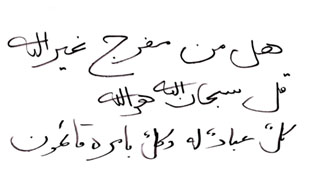 هل من مفرج غير الله
قل سبحان الله هو الله
كل عباد له وكل بامره قائمون